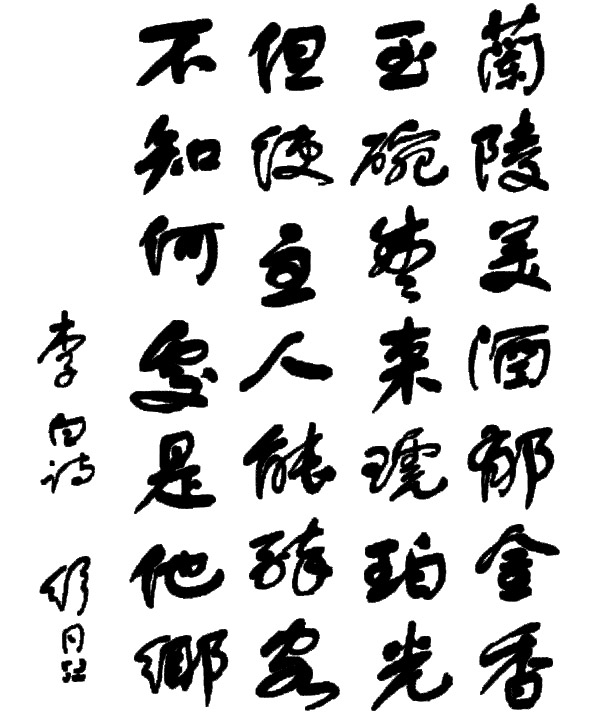 蘭陵美酒郁金香
玉碗盛来琥珀光
但使主人能醉客
不知何處是他鄉
李白诗